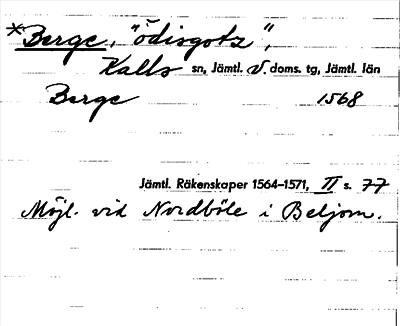 *Berge, "ödisgotz",
Kalls sn, Jämtl. V. doms. tg, Jämtl. län
Berge 1568
Jämtl. Räkenskaper 1564–1571, II s. 77
Möjl. vid Nordböle i Beljom.